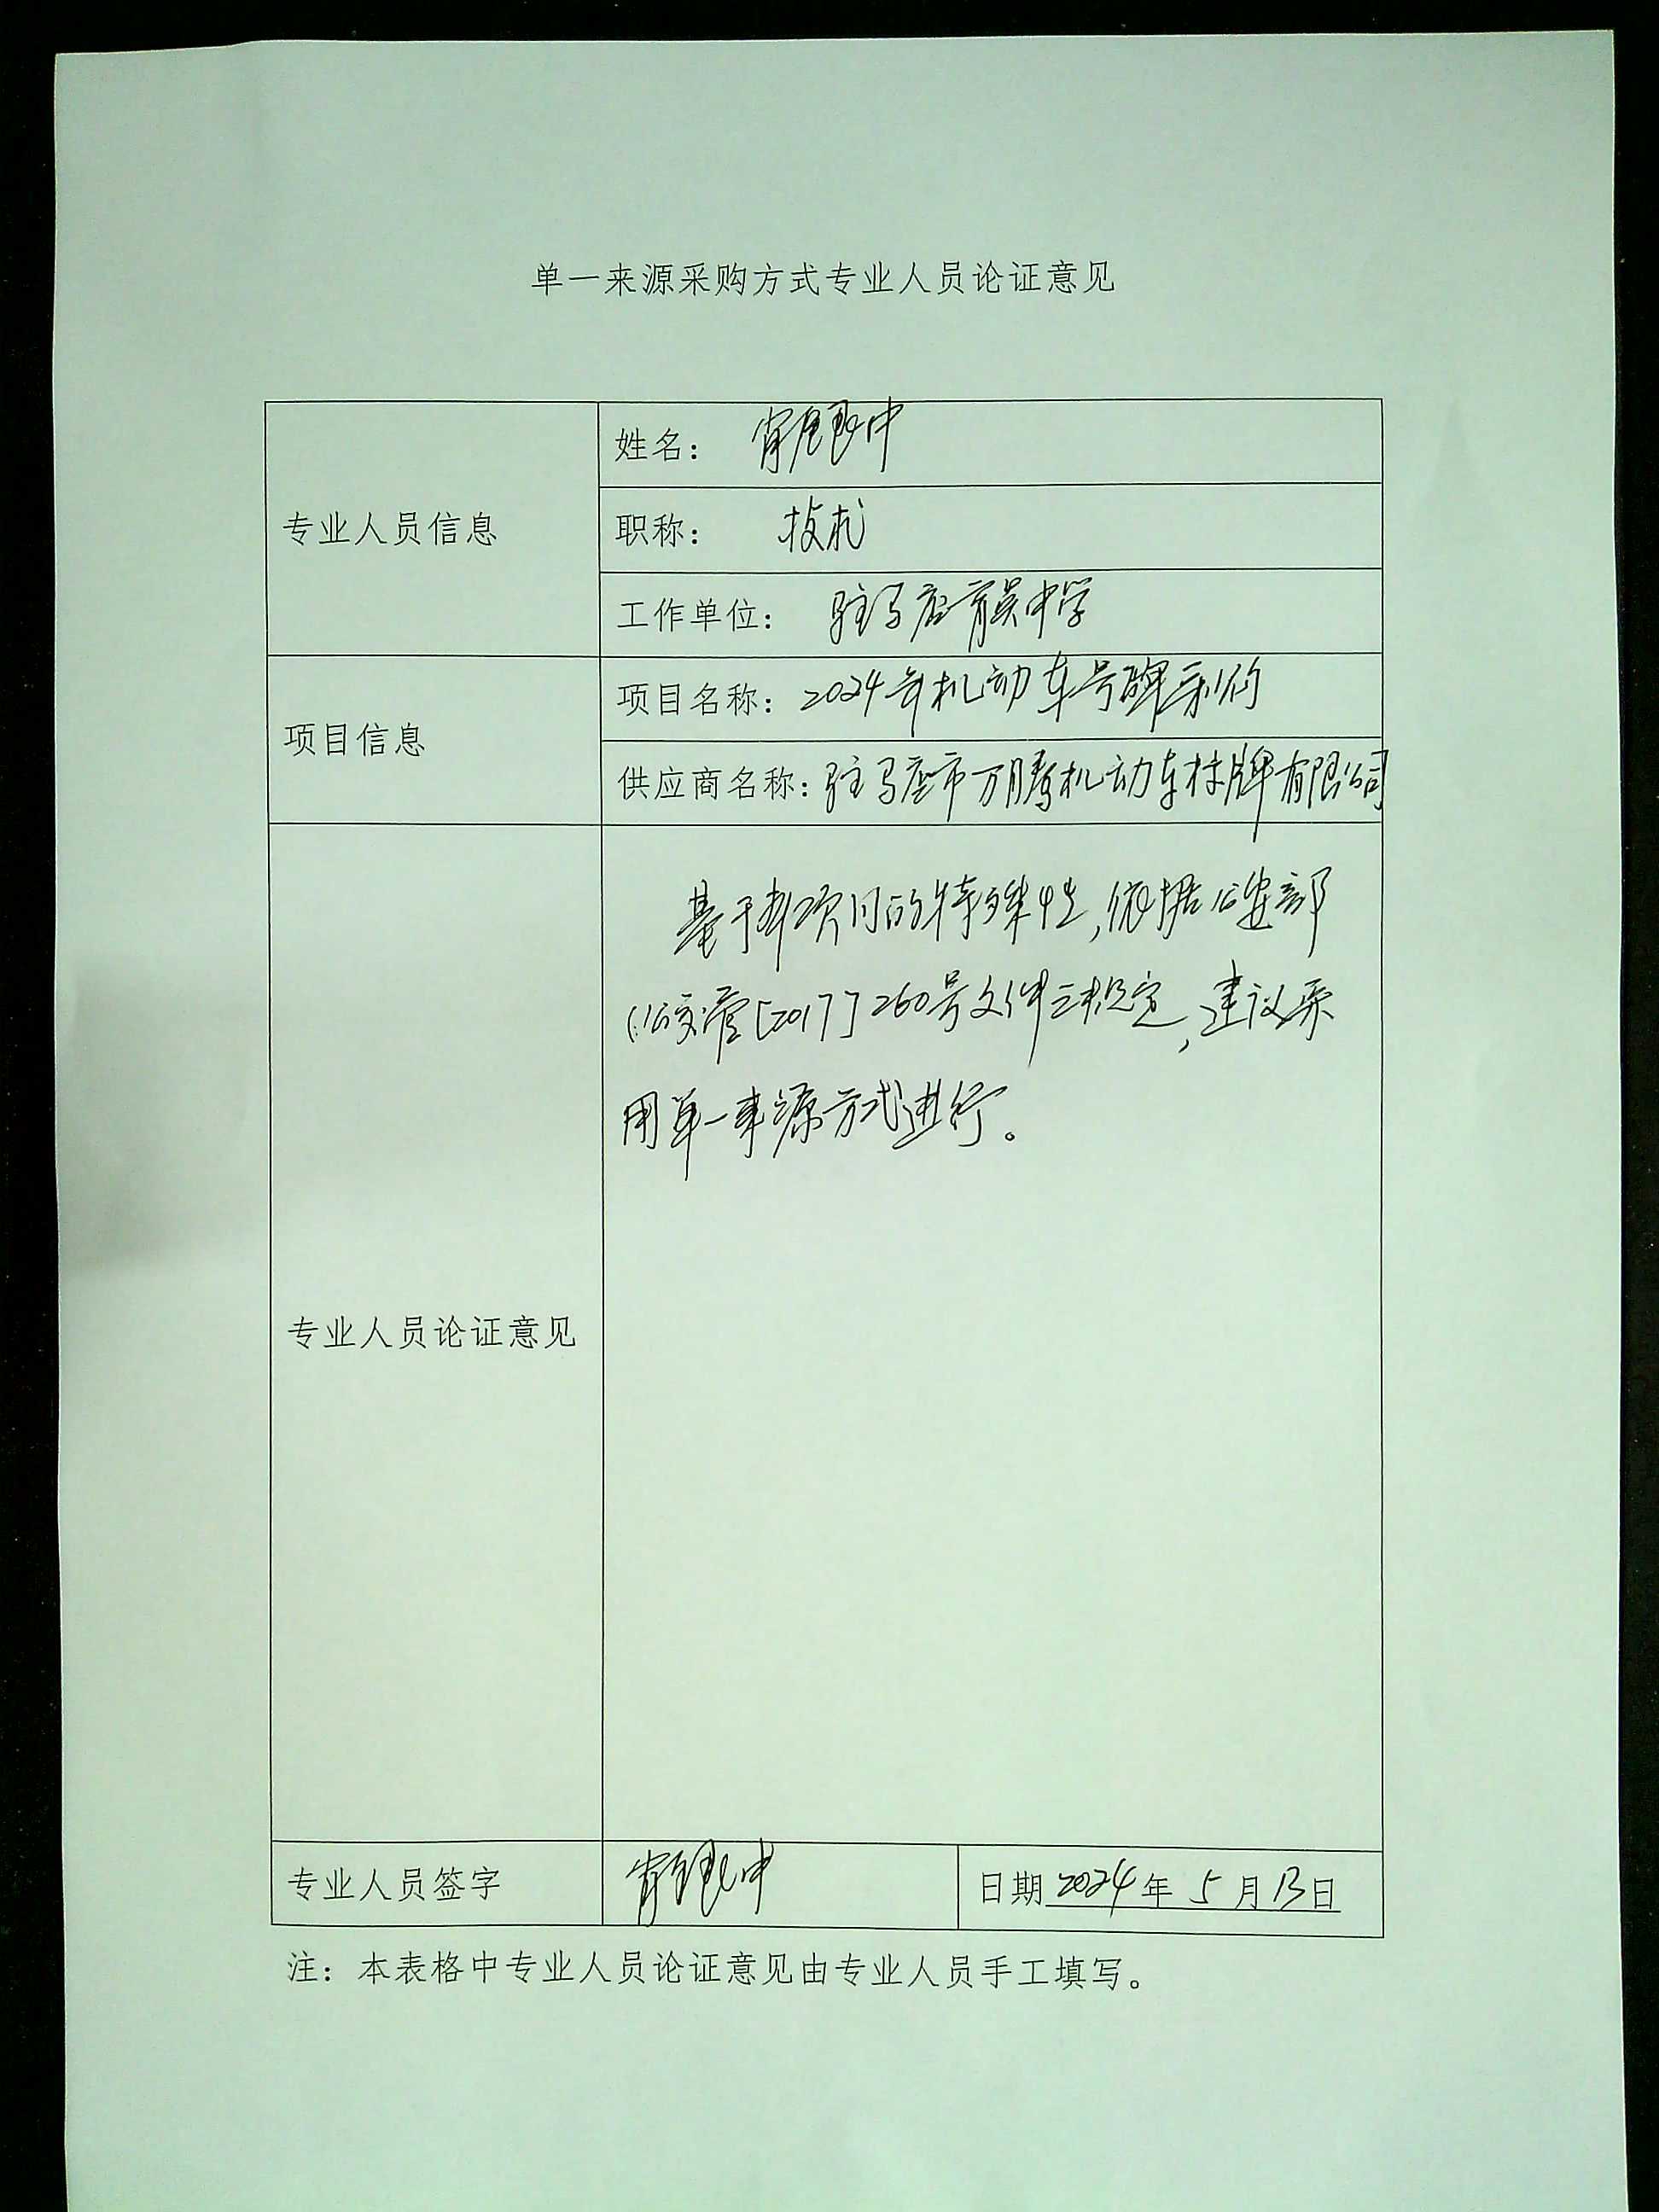 单一来源采购方式专业人员论证意见
专业人员信息
姓名：
职称：
工作单位： 驻马店 中学
项目信息
项目名称：2024年机动车号牌采购
供应商名称：驻马店市万腾机动车标牌有限公司
专业人员论证意见
基于本项目的特殊性，依据公安部
公交管[2017]260号文件之规定，建议采
用单一来源方式进行。
专业人员签字
日期 2024 年 5 月 13 日
注：本表格中专业人员论证意见由专业人员手工填写。